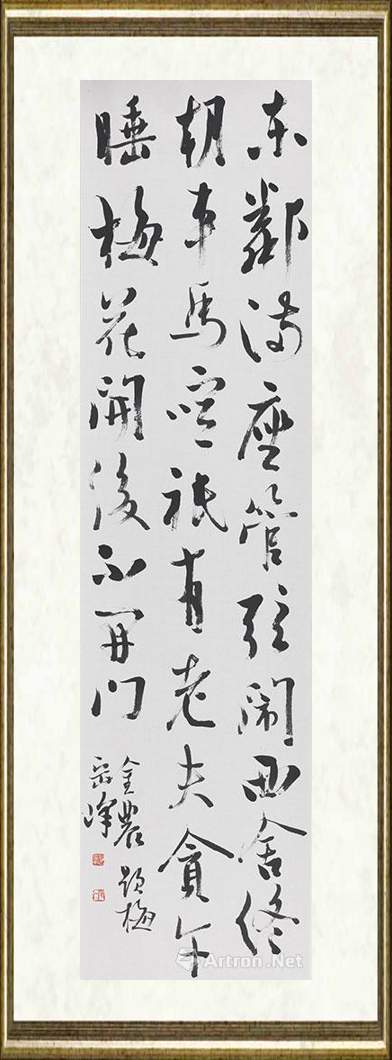 东邻满座管弦闹西舍终
朝车马喧祇有老夫贪午
睡梅花开後不开门
金农题梅
岳峰
Artron.Net